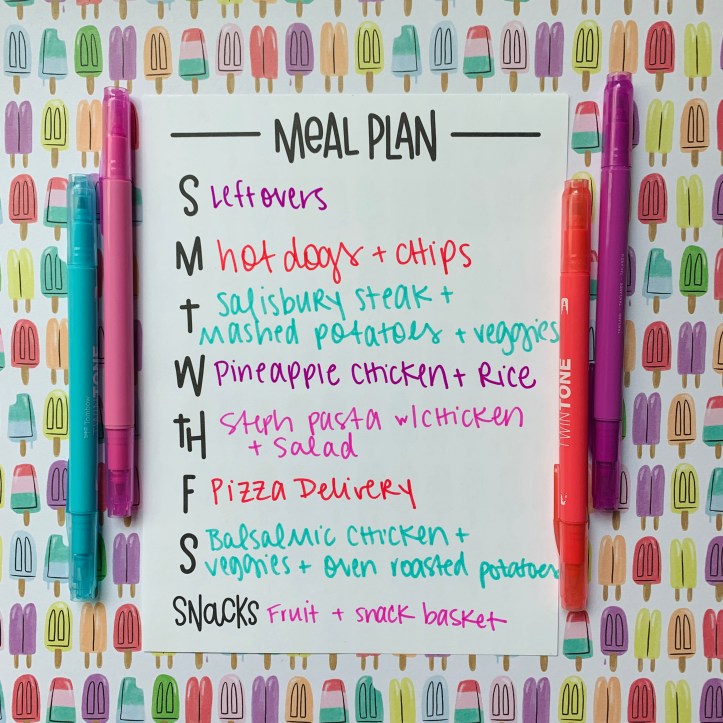 MEAL PLAN
S Leftovers
M hot dogs + CHips
t Salisbury steak +
mashed potatoes + veggies
W Pineapple CHicken + Rice
tH Steph pasta w/ CHicken
+ Salad
F Pizza Delivery
S Balsalmic CHicken +
veggies + Oven roasted potatoes
SNACKS Fruit + snack basket
TWINTONE
TWINTONE